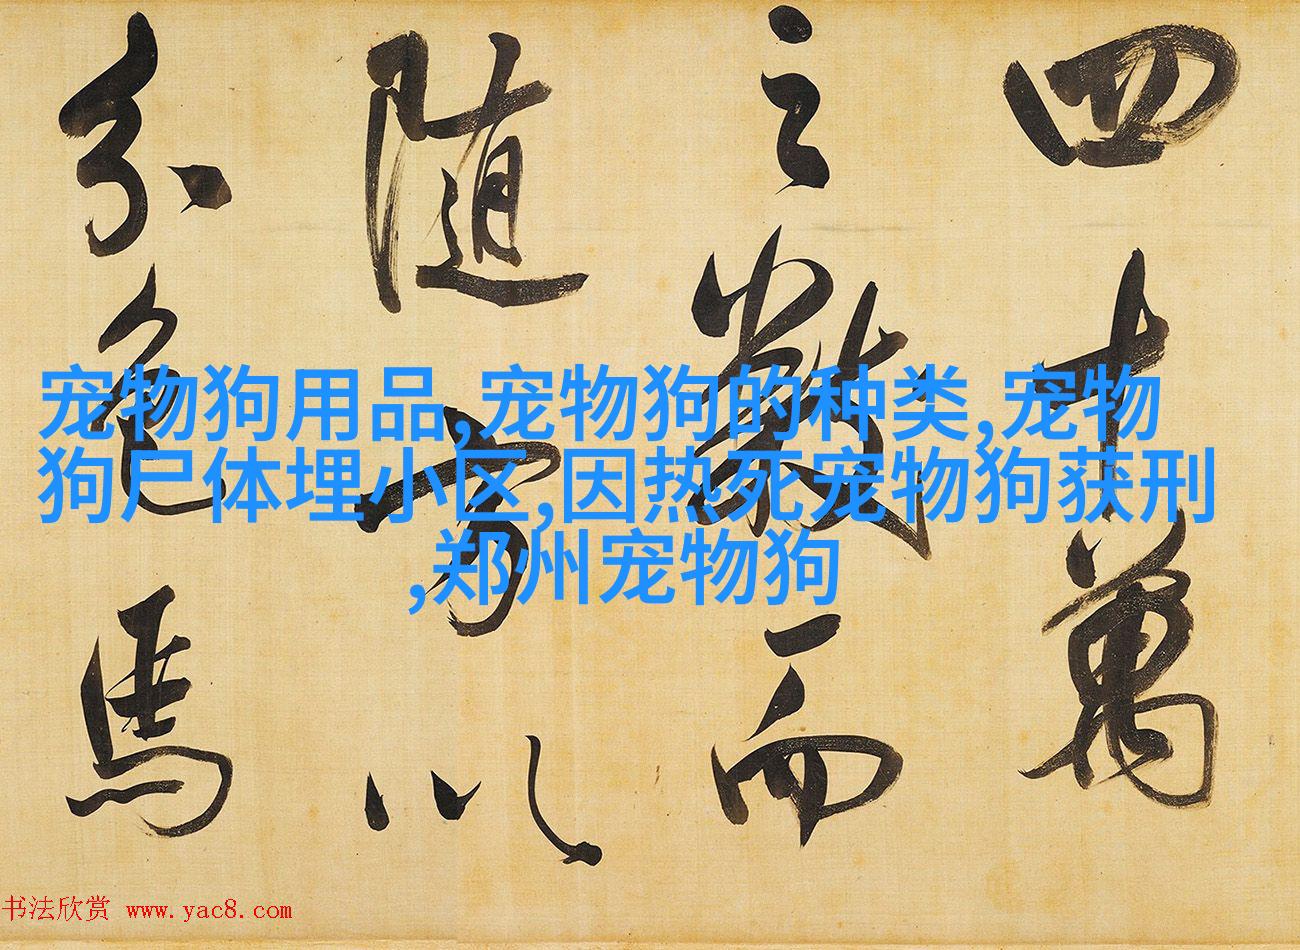 四十萬
之數而
随方以
分色馬
宠物狗用品,宠物狗的种类,宠物
狗尸体埋小区,因热死宠物狗获刑
,郑州宠物狗
书法欣赏 www.yac8.com